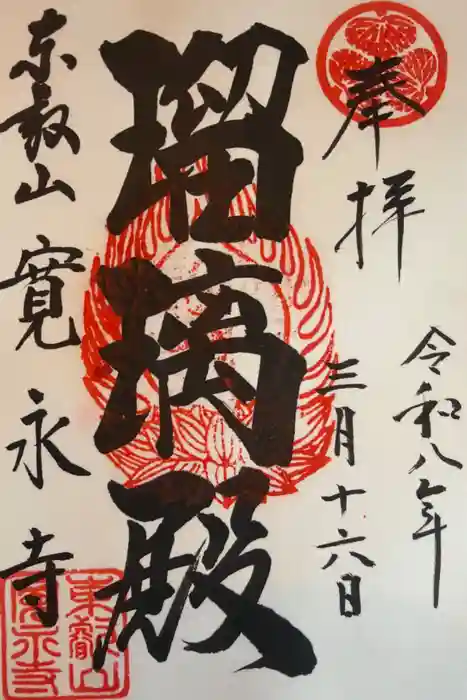 奉拝
令和八年
三月十六日
瑠璃殿
東叡山 寛永寺
東叡山
寛永寺